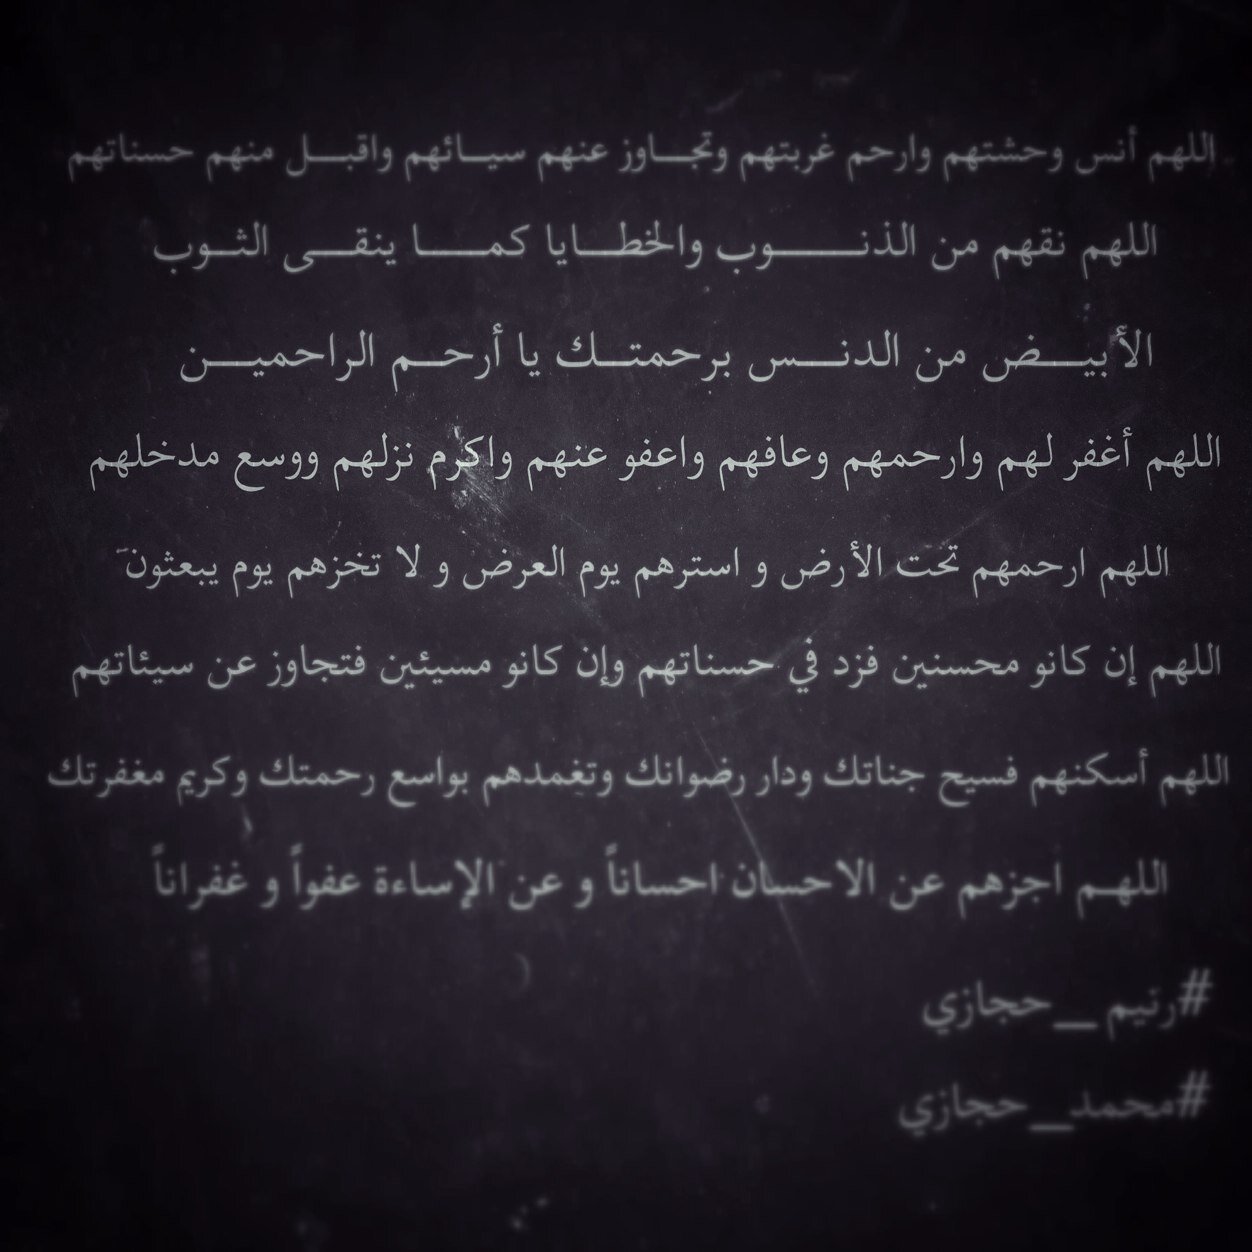 اللهم أنس وحشتهم وارحم غربتهم وتجـــاوز عنهم سيـــائهم واقبـــل منهم حسناتهم
اللهم نقهم من الذنـــــوب والخطـــايا كمـــــا ينقـــى الثـوب
الأبيـــض من الدنـــس برحمتـــك يا أرحـــم الراحميـــن
اللهم أغفر لهم وارحمهم وعافهم واعفو عنهم واكرم نزلهم ووسع مدخلهم
اللهم ارحمهم تحت الأرض و استرهم يوم العرض و لا تخزهم يوم يبعثون
اللهم إن كانو محسنين فزد في حسناتهم وإن كانو مسيئين فتجاوز عن سيئاتهم
اللهم أسكنهم فسيح جناتك ودار رضوانك وتغمدهم بواسع رحمتك وكريم مغفرتك
اللهـم اجزهم عن الاحسان احساناً و عن الإساءة عفواً و غفراناً
#رنيم__حجازي
#محمد__حجازي